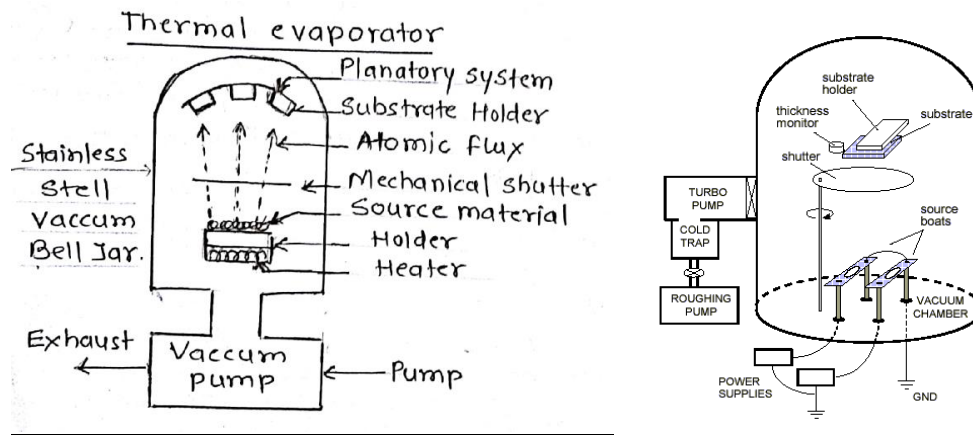 Thermal evaporator
Planatory system
Substrate Holder
Atomic flux
Mechanical shutter
Source material
Holder
Heater
Stainless
Stell
Vaccum
Bell Jar.
Exhaust
Vaccum
pump
Pump
substrate
holder
thickness
monitor
substrate
shutter
TURBO
PUMP
COLD
TRAP
ROUGHING
PUMP
source
boats
VACUUM
CHAMBER
POWER
SUPPLIES
GND